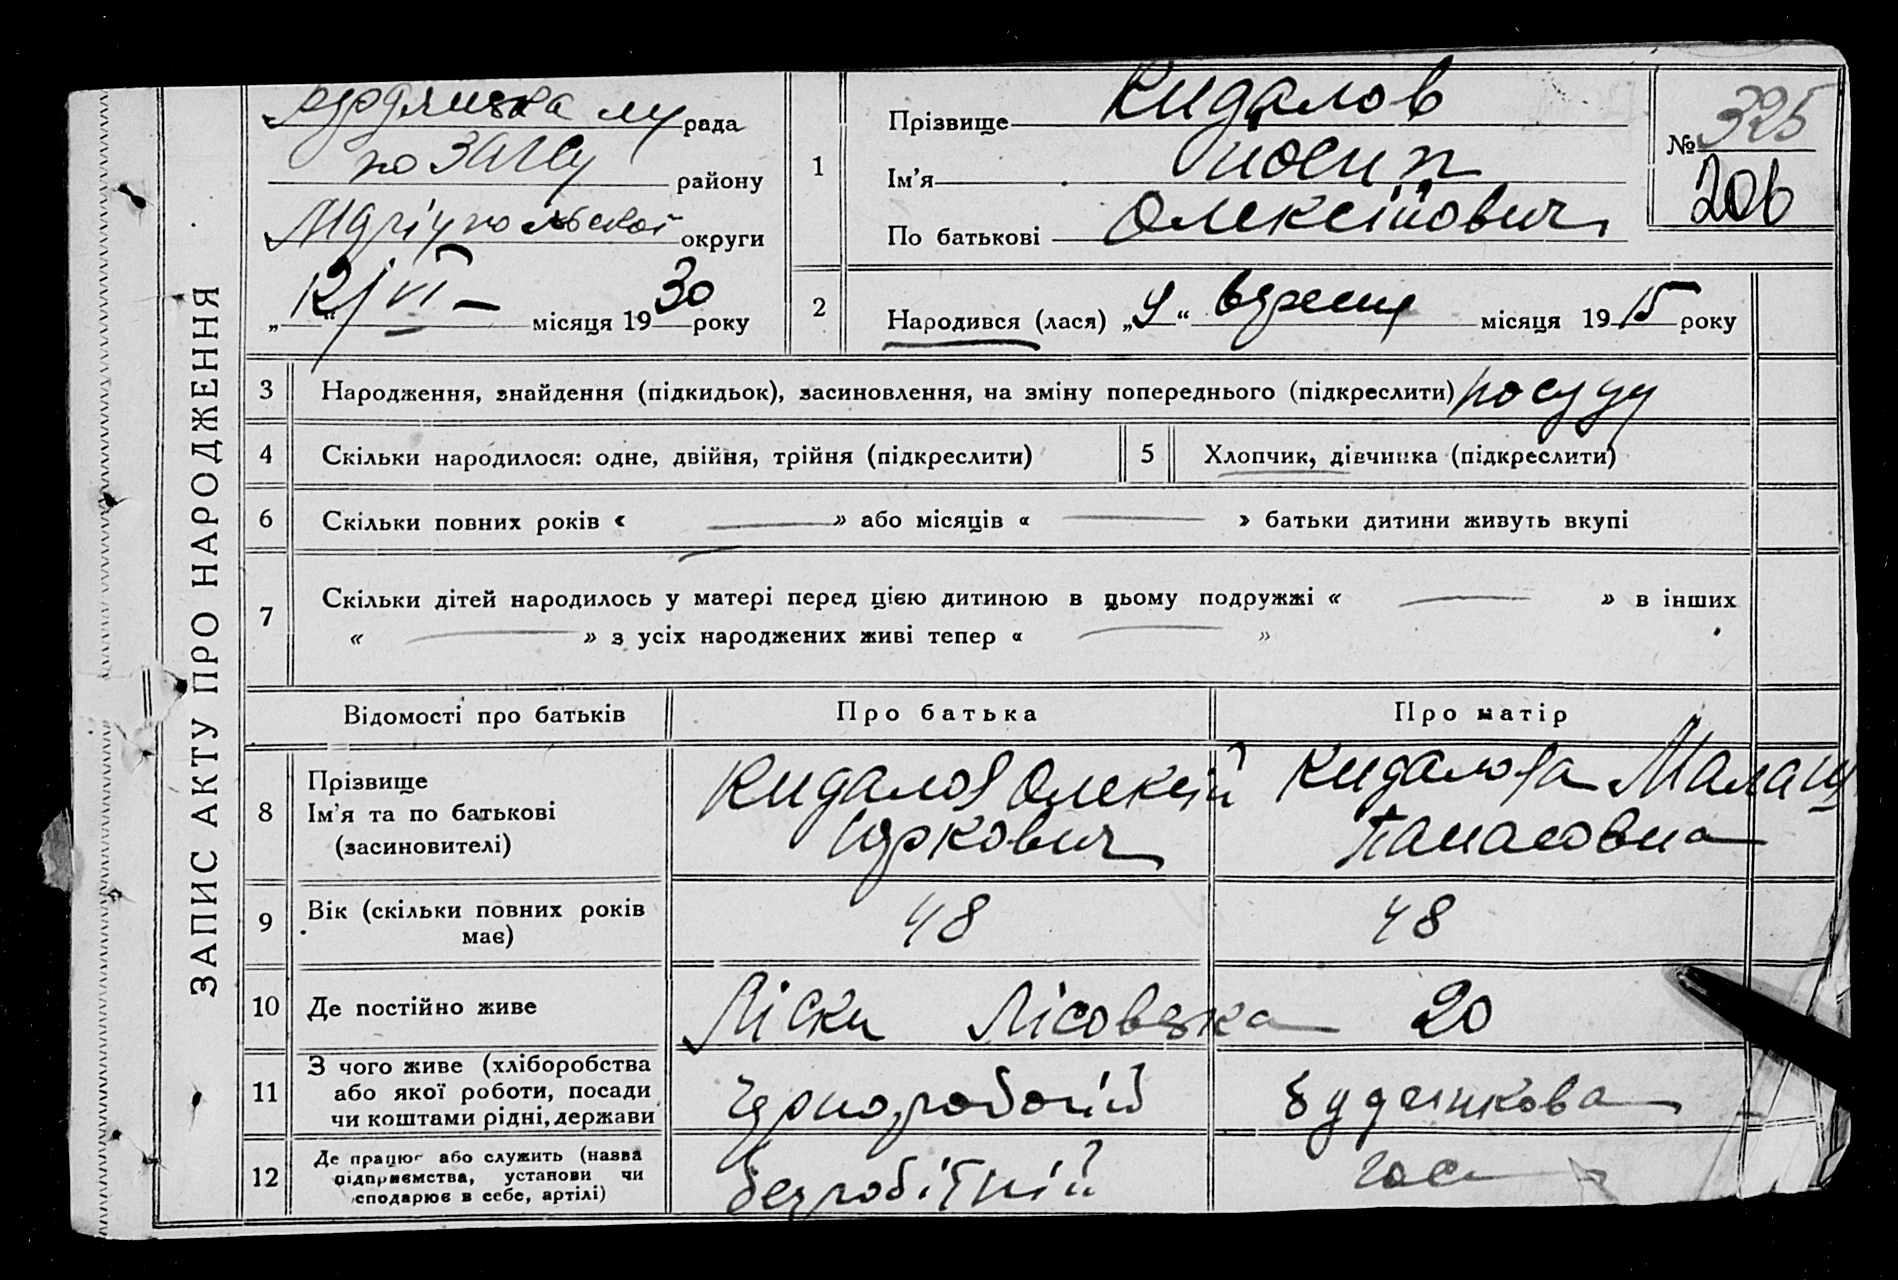 ЗАПИС АКТУ ПРО НАРОДЖЕННЯ
рада
по ЗАГСу району
Маріупольської округи
„12“ VI місяця 1930 року
1
Прізвище Кидалов
Ім'я Йосип
По батькові Олексійович
№ 325
206
2
Народився (лася) „9“ вересня місяця 1915 року
3 Народження, знайдення (підкидьок), засиновлення, на зміну попереднього (підкреслити) по суду
4 Скільки народилося: одне, двійня, трійня (підкреслити) 5 Хлопчик, дівчинка (підкреслити)
6 Скільки повних років « — » або місяців « — » батьки дитини живуть вкупі
7 Скільки дітей народилось у матері перед цією дитиною в цьому подружжі « — » в інших
« — » з усіх народжених живі тепер « — »
Відомості про батьків Про батька Про матір
8 Прізвище
Ім'я та по батькові
(засиновителі)
Кидалов Олексій
Юркович
Кидалова
Панасовна
9 Вік (скільки повних років
має)
48 48
10 Де постійно живе Ліски Лісовська 20
11 З чого живе (хліборобства
або якої роботи, посади
чи коштами рідні, держави
чорноробочій
12 Де працює або служить (назва
підприємства, установи чи
сподарює в себе, артілі)
безробітній